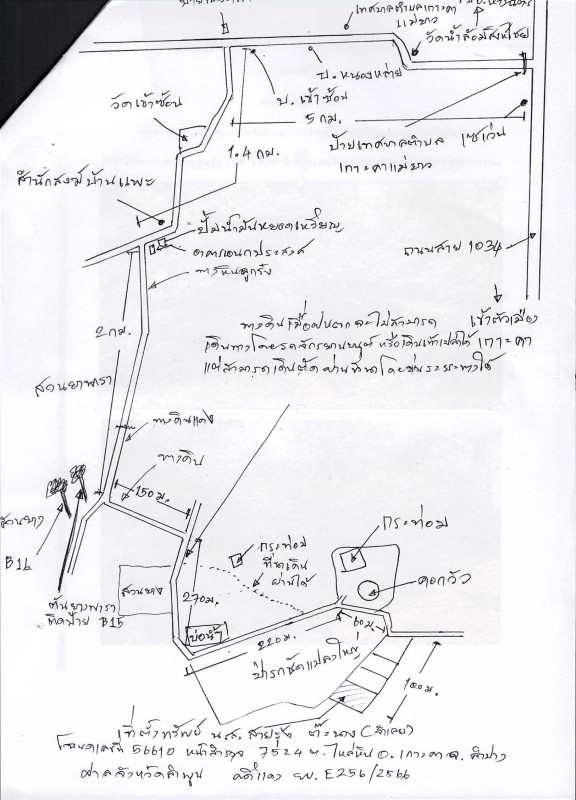 เทศบาลตำบลเกาะคา
แม่ยาว
วัดน้ำล้อมสิงห์ไชย
บ. หนองหล่าย
วัดเข้าซ้อน
บ. เข้าซ้อน
5 กม.
ป้ายเทศบาลตำบล
เกาะคาแม่ยาว
เซเว่น
1.4 กม.
สำนักสงฆ์บ้านแพะ
ปั้มน้ำมันหยอดเหรียญ
อาคารเอนกประสงค์
ทางหินลูกรัง
ถนนสาย 1034
2 กม.
เข้าตัวเมือง
เกาะคา
ทางดินเมื่อฝนตกจะไม่สามารถ
เดินทางโดยรถจักรยานยนต์ หรือเดินเท้าเปล่าได้
แต่สามารถเดินตัดผ่านทุ่งนาโดยย่นระยะทางได้
สวนยางพารา
ทางดินแดง
ทางดิน
150 ม.
สวนยาง
B16
ต้นยางพารา
ติดป้าย B15
สวนยาง
270 ม.
กระท่อม
ที่นาเดิน
ผ่านได้
กระท่อม
คอกวัว
บ่อน้ำ
220 ม.
60 ม.
ป่ารกชัฏแปลงใหญ่
100 ม.
ที่ตั้งทรัพย์ น.ส. สายรุ้ง
โฉนดเลขที่ 56610 หน้าสำรวจ 7524 ต. ไหล่หิน อ. เกาะคา จ. ลำปาง
ศาลจังหวัดลำพูน คดีแดง ผบ. E256/2566